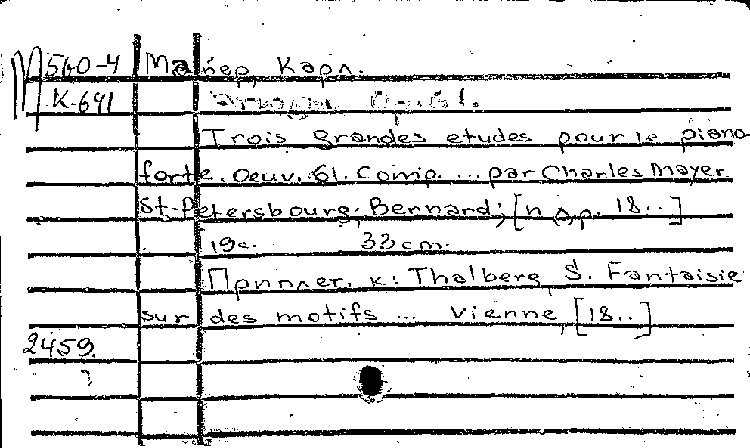 М 560-4 Майер, Карл.
К-691 Этюды. Ор. 61.
Trois grandes etudes pour le piano
forte. Oeuv. 61. Comp. ... par Charles Mayer.
St-Petersbourg, Bernard; [н.д.р. 18..]
19с. 33 cm.
Приплет. к: Thalberg, S. Fantaisie
sur des motifs ... Vienne, [18..]
2459.